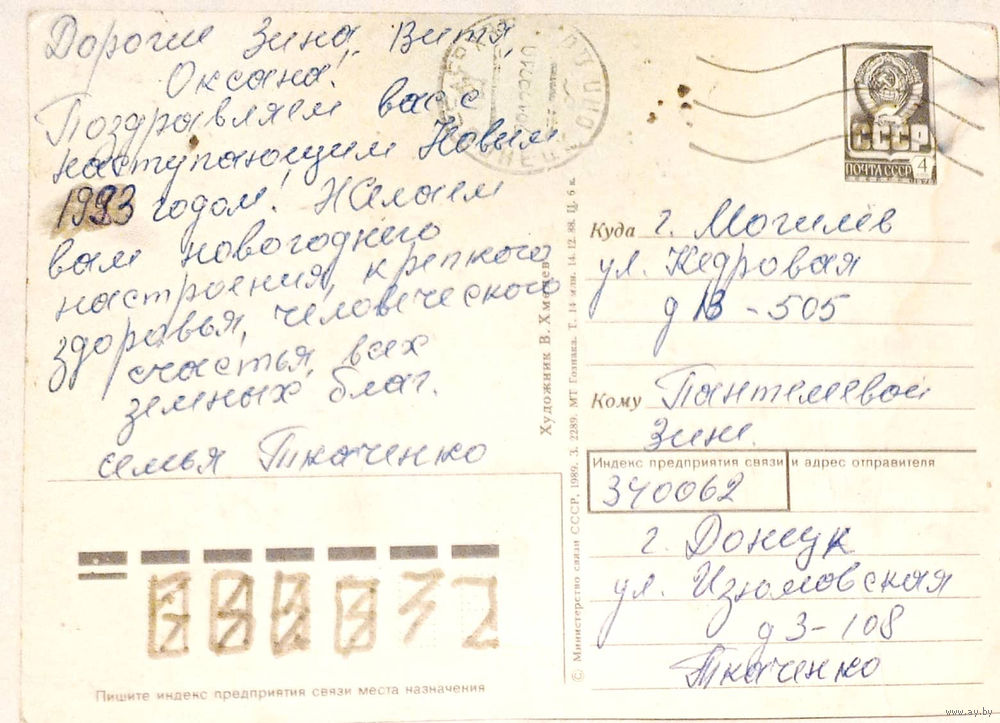 Дорогие Зина, Витя,
Оксана!
Поздравляем вас с
наступающим Новым
1993 годом! Желаем
вам новогоднего
настроения, крепкого
здоровья, человеческого
счастья, всех
земных благ.
семья Ткаченко
СССР
ПОЧТА СССР 4
Куда г. Могилёв
ул. Кедровая
д 13 - 505
Кому Пантелеевой
Зине.
Индекс предприятия связи и адрес отправителя
340062
г. Донецк
ул. Изюмовская
д 3 - 108
Ткаченко
Пишите индекс предприятия связи места назначения
© Министерство связи СССР, 1989. З. 2289. МТ Гознака. Т. 14 млн. 14.12.88. Ц. 6 к.
Художник В. Хмелев
www.ay.by